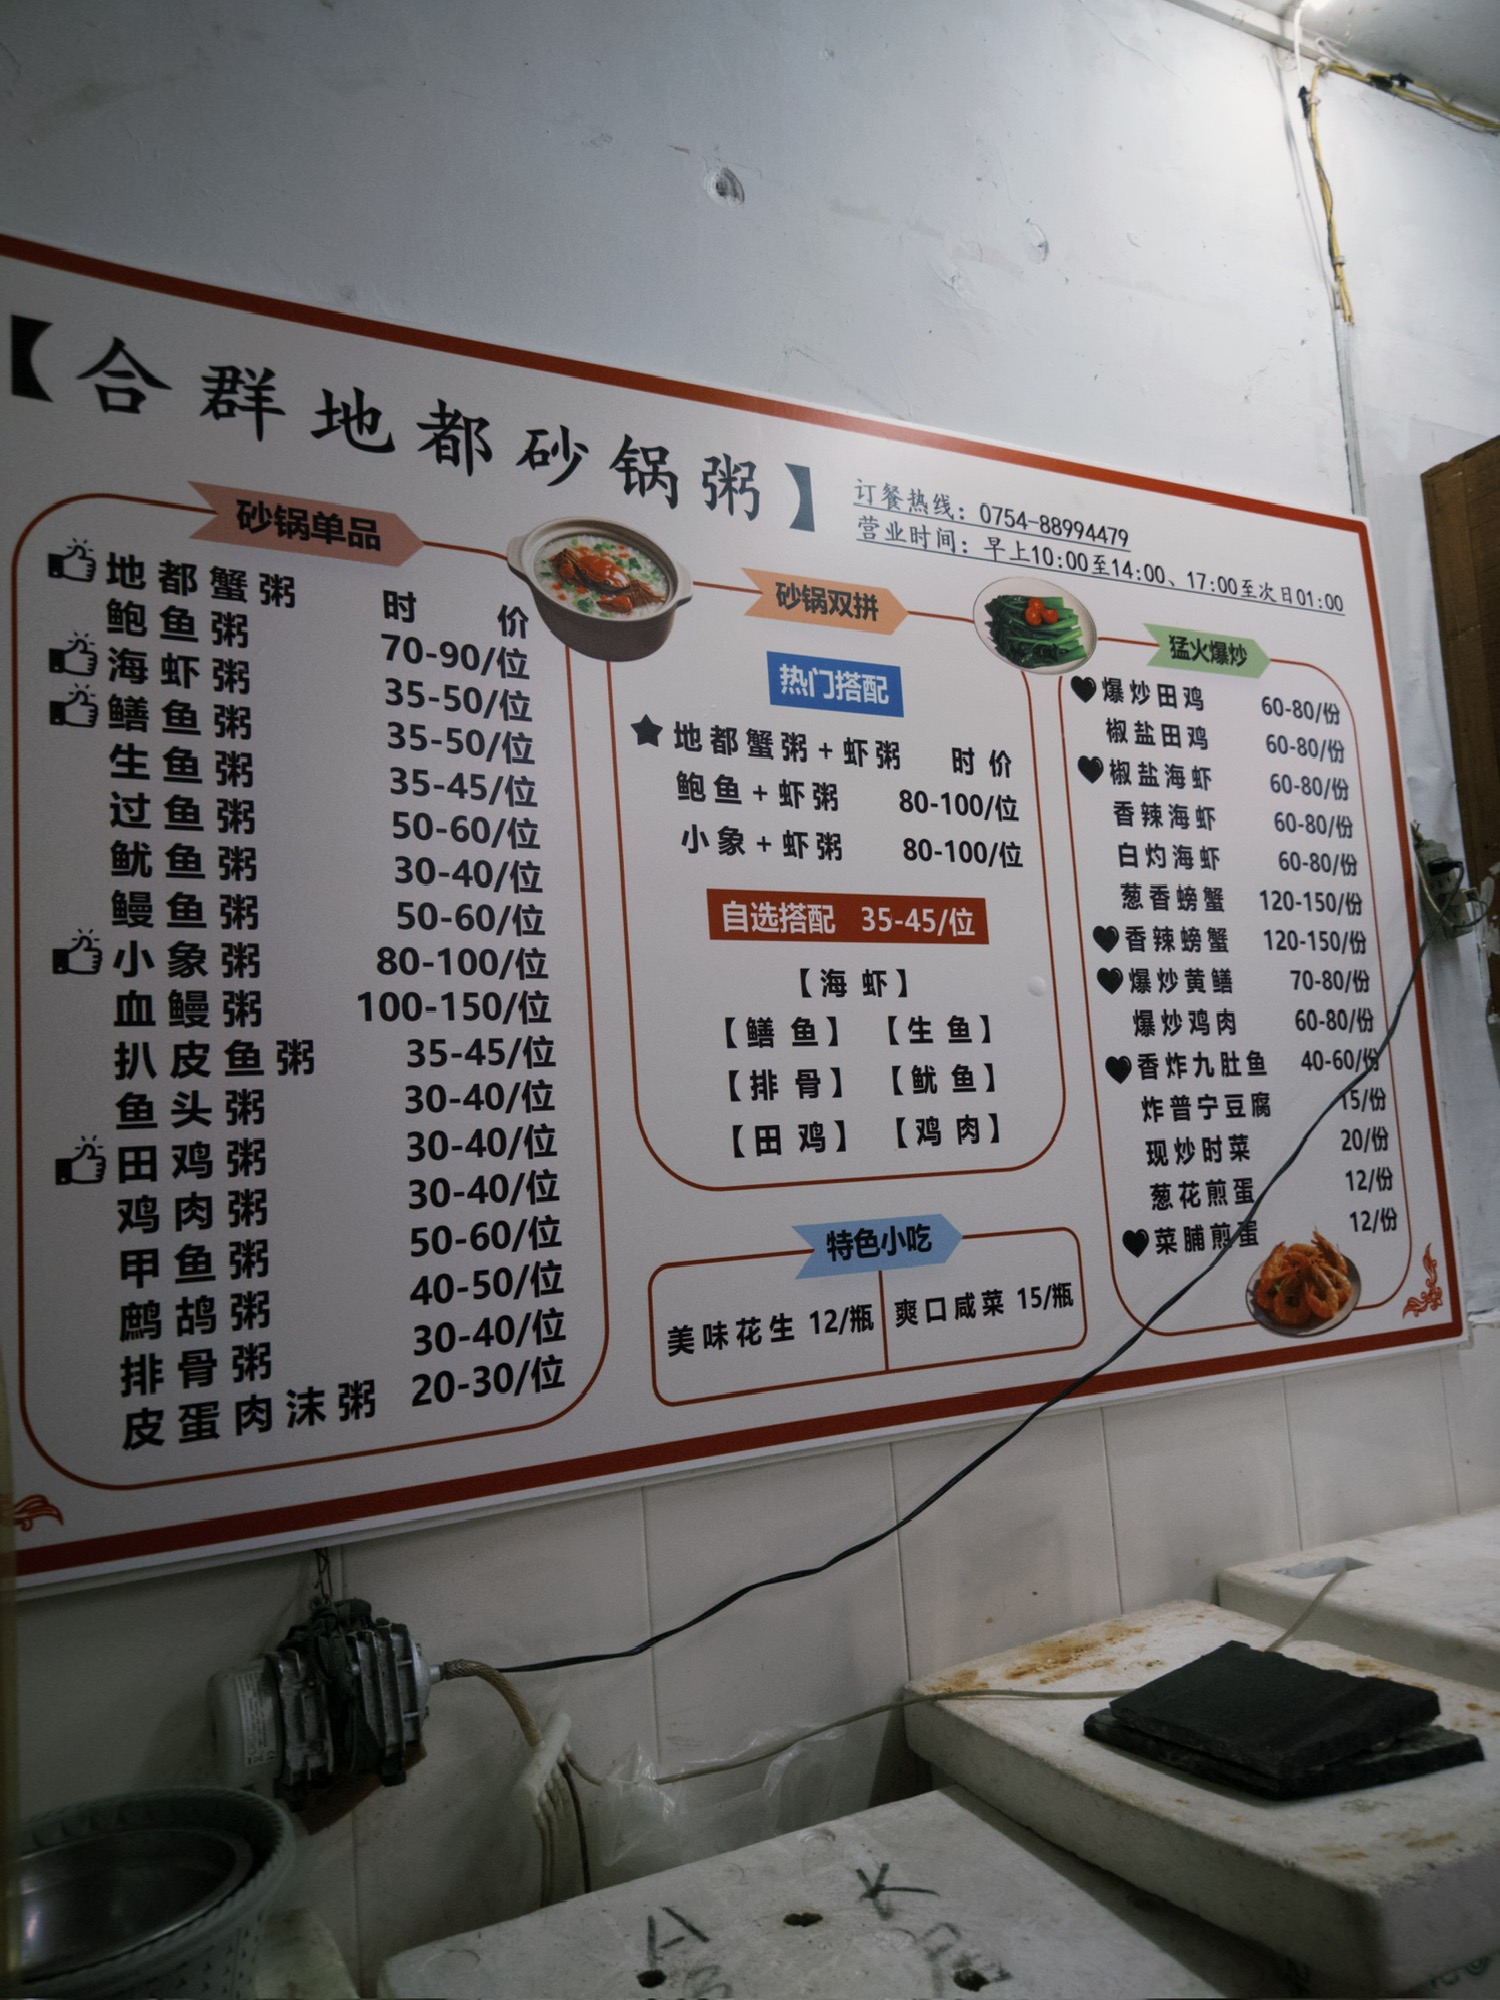 【合群地都砂锅粥】
订餐热线：0754-88994479
营业时间：早上10:00至14:00、17:00至次日01:00
砂锅单品
地都蟹粥 时价
鲍鱼粥 70-90/位
海虾粥 35-50/位
鳝鱼粥 35-50/位
生鱼粥 35-45/位
过鱼粥 50-60/位
鱿鱼粥 30-40/位
鳗鱼粥 50-60/位
小象粥 80-100/位
血鳗粥 100-150/位
扒皮鱼粥 35-45/位
鱼头粥 30-40/位
田鸡粥 30-40/位
鸡肉粥 30-40/位
甲鱼粥 50-60/位
鹧鸪粥 40-50/位
排骨粥 30-40/位
皮蛋肉沫粥 20-30/位
砂锅双拼
热门搭配
地都蟹粥+虾粥 时价
鲍鱼+虾粥 80-100/位
小象+虾粥 80-100/位
自选搭配 35-45/位
【海虾】
【鳝鱼】 【生鱼】
【排骨】 【鱿鱼】
【田鸡】 【鸡肉】
特色小吃
美味花生 12/瓶 爽口咸菜 15/瓶
猛火爆炒
爆炒田鸡 60-80/份
椒盐田鸡 60-80/份
椒盐海虾 60-80/份
香辣海虾 60-80/份
白灼海虾 60-80/份
葱香螃蟹 120-150/份
香辣螃蟹 120-150/份
爆炒黄鳝 70-80/份
爆炒鸡肉 60-80/份
香炸九肚鱼 40-60/份
炸普宁豆腐 15/份
现炒时菜 20/份
葱花煎蛋 12/份
菜脯煎蛋 12/份